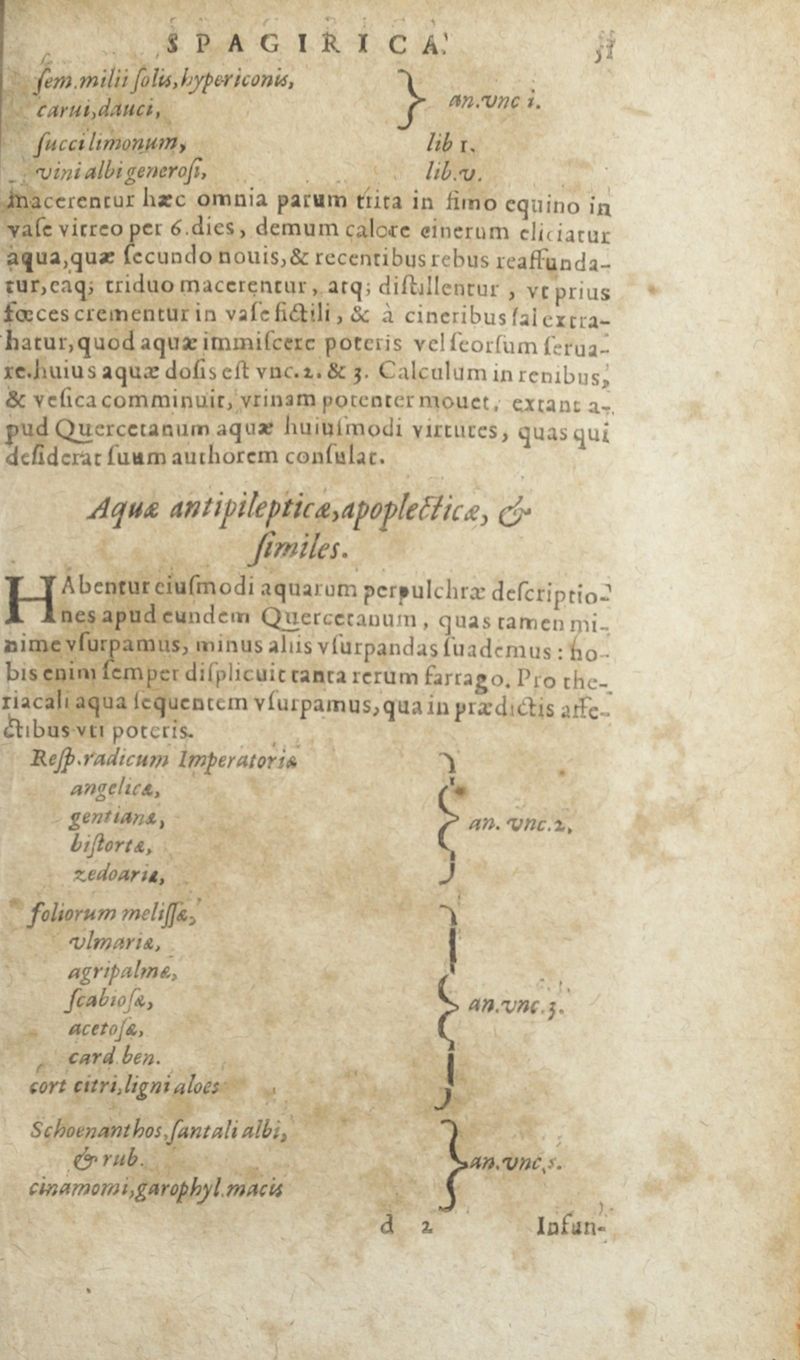 SPAGIRICA. 51
ſem.milii ſolis,hypericonis,
carui,dauci, } an.vnc i.
ſucci limonum, lib 1.
vini albi generoſi, lib.v.
macerentur hæc omnia parum trita in fimo equino in
vaſe vitreo per 6.dies, demum calore cinerum eliciatur
aqua,quæ ſecundo nouis,& recentibus rebus reaffunda-
tur,eaq; triduo macerentur, atq; diſtillentur, vt prius
fœces crementur in vaſe fictili, & à cineribus ſal extra-
hatur,quod aquæ immiſcere poteris vel ſeorſum ſerua-
re.huius aquæ doſis eſt vnc.2. & 3. Calculum in renibus,
& veſica comminuit, vrinam potenter mouet, extant a-
pud Quercetanum aquæ huiuſmodi virtutes, quas qui
deſiderat ſuum authorem conſulat.
Aquæ antipilepticæ,apoplecticæ, &
ſimiles.
HAbentur eiuſmodi aquarum perpulchræ deſcriptio-
nes apud eundem Quercetanum, quas tamen mi-
nime vſurpamus, minus aliis vſurpandas ſuademus: no-
bis enim ſemper diſplicuit tanta rerum farrago. Pro the-
riacali aqua ſequentem vſurpamus,qua in prædictis affe-
ctibus vti poteris.
Reſp.radicum Imperatoriæ
angelicæ,
gentianæ, } an. vnc.2,
biſtortæ,
zedoariæ,
foliorum meliſſæ,
vlmariæ,
agripalmæ,
ſcabioſæ, } an.vnc.3.
acetoſæ,
card ben.
cort citri,ligni aloes
Schoenanthos,ſantali albi,
& rub. } an.vnc,s.
cinamomi,garophyl.macis
d 2 Infun-